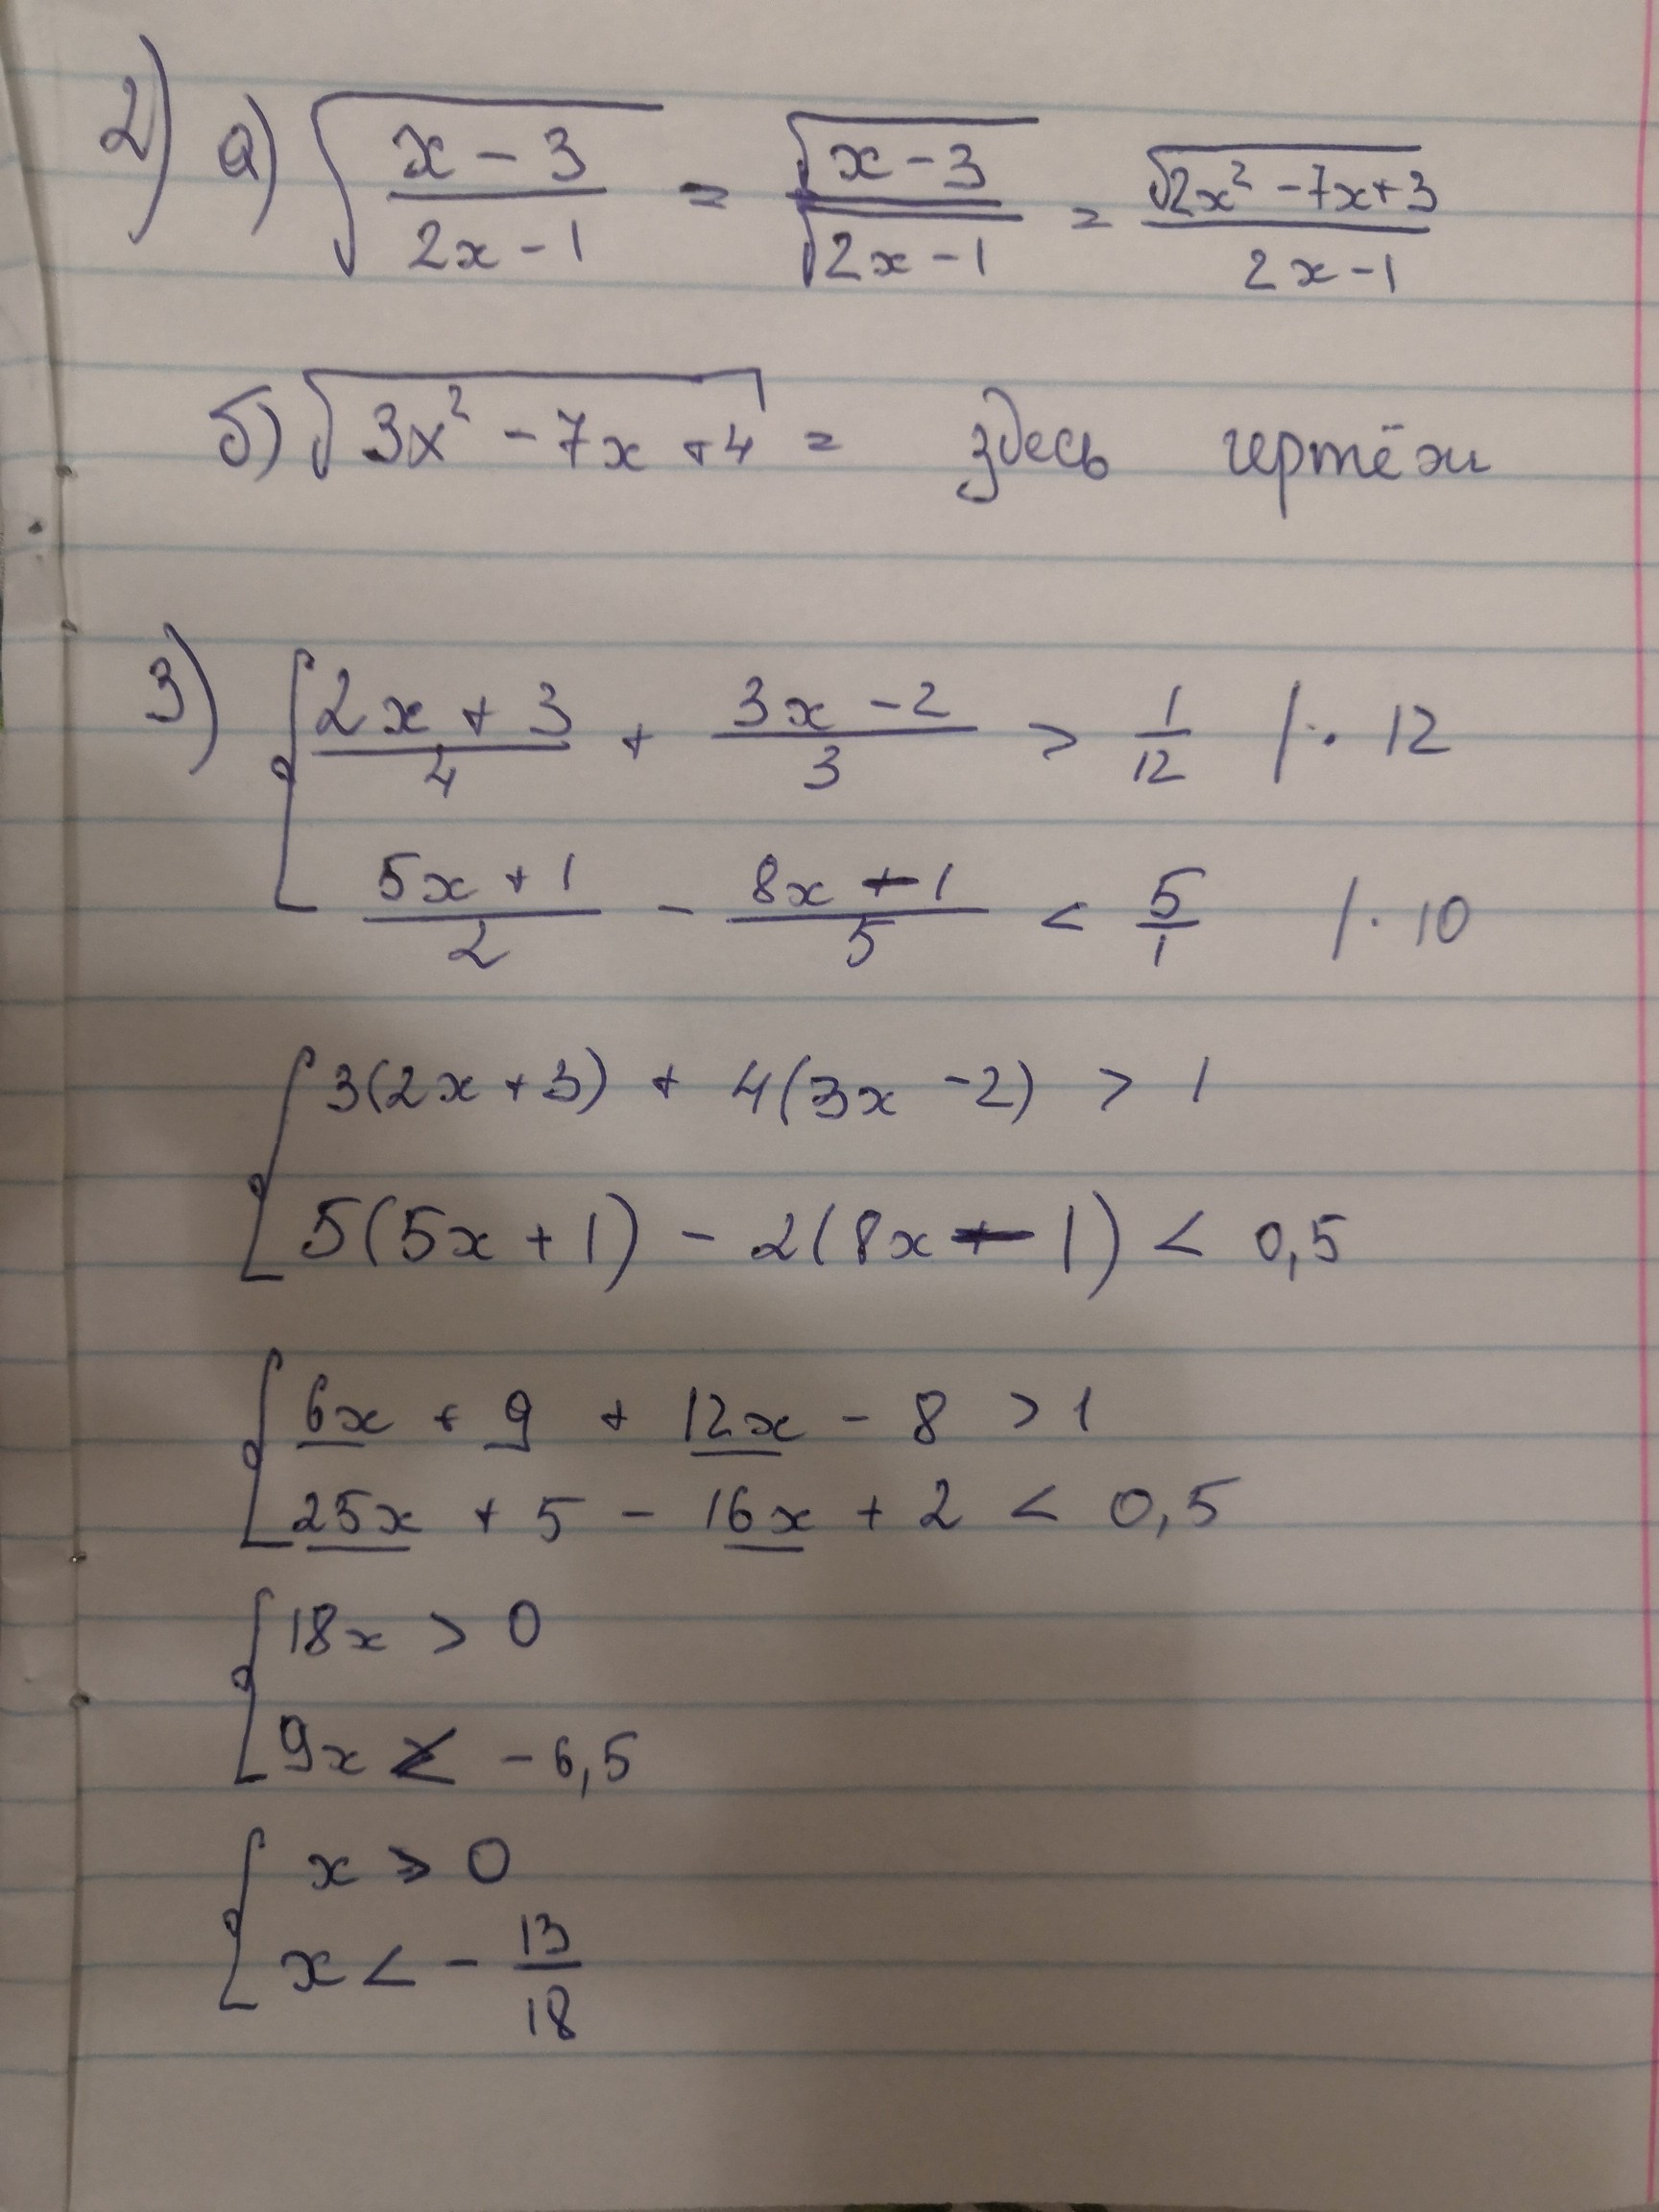 2) а) √((x-3)/(2x-1)) = √(x-3)/√(2x-1) = √(2x²-7x+3)/(2x-1)
б) √(3x²-7x+4) = здесь чертёж
3) { (2x+3)/4 + (3x-2)/3 > 1/12 /· 12
(5x+1)/2 - (8x-1)/5 < 5/1 /· 10
{ 3(2x+3) + 4(3x-2) > 1
5(5x+1) - 2(8x-1) < 0,5
{ 6x + 9 + 12x - 8 > 1
25x + 5 - 16x + 2 < 0,5
{ 18x > 0
9x < -6,5
{ x > 0
x < - 13/18